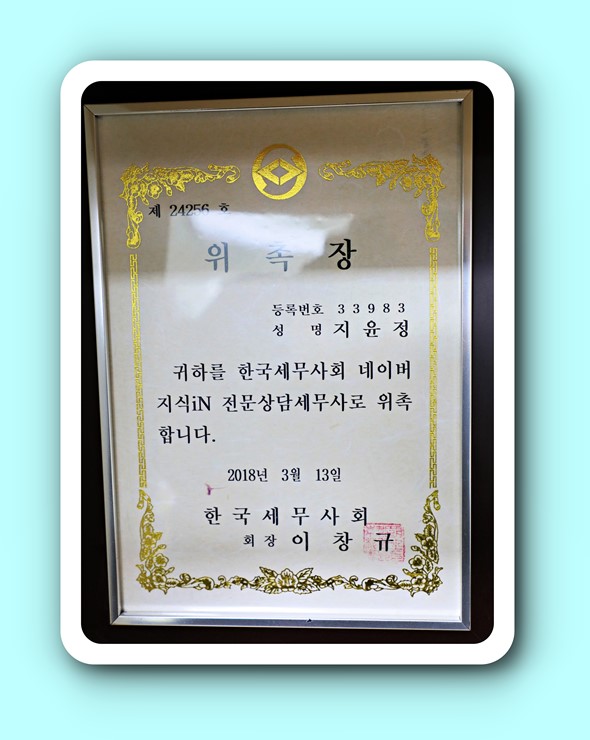 제 24256 호
위 촉 장
등록번호 3 3 9 8 3
성 명 지 윤 정
귀하를 한국세무사회 네이버
지식iN 전문상담세무사로 위촉
합니다.
2018년 3월 13일
한 국 세 무 사 회
회 장 이 창 규